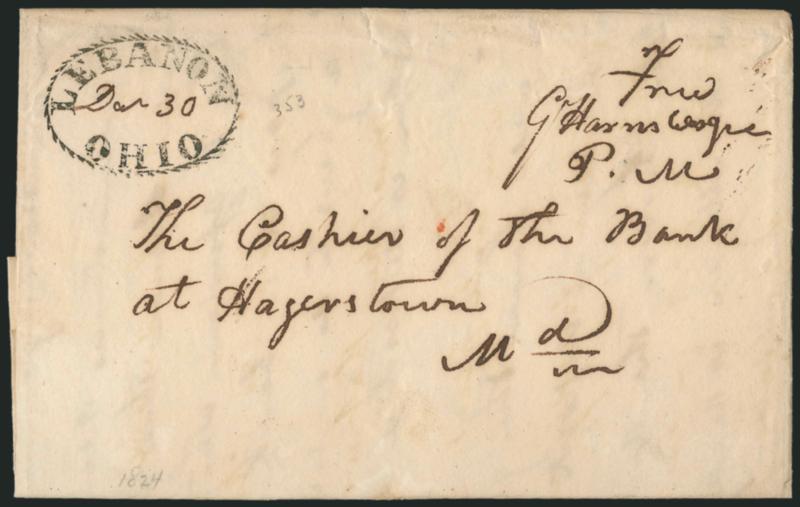 LEBANON
30
OHIO
353
Free
P. M
The Cashier of the Bank
at Hagerstown
Md
1824